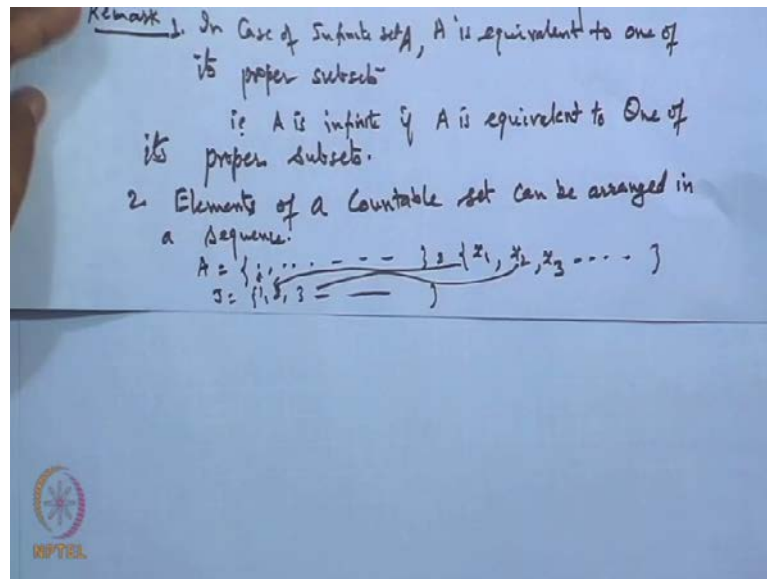 Remark 1. In Case of Infinite set A, A is equivalent to one of
its proper subsets
ie A is infinite if A is equivalent to One of
its proper subsets.
2 Elements of a Countable set can be arranged in
a sequence.
A = { ; , . . . - - - } = { x1, x2, x3 - - - - }
J = { 1, 2, 3 - — }
NPTEL